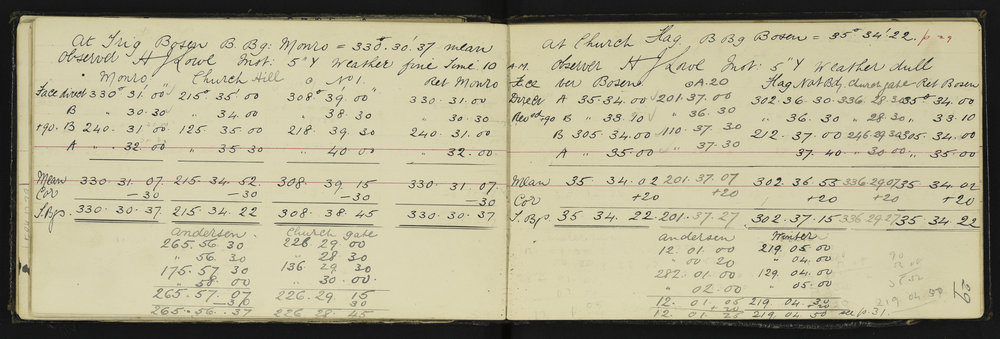 At Trig Bosen B. Bg: Monro = 330°.30'.37 mean
Observer H J Lowe Inst: 5" Y Weather fine Time 10 A.M.
Monro Church Hill o No 1. Ret Monro
Face direct 330° 31' 00" 215° 35' 00 308° 39' 00" 330. 31. 00
B " 30. 30 " 34. 00 " 38. 30 " 30. 30
+90. B 240. 31. 00 125. 35. 00 218. 39. 30 240. 31. 00
A " 32. 00 " 35. 30 " 40. 00 " 32. 00
Mean 330. 31. 07 215. 34. 52 308. 39. 15 330. 31. 07
Cor —30 —30 —30 —30
T. Bgs. 330. 30. 37 215. 34. 22 308. 38. 45 330. 30. 37
Andersen. Church gate
265. 56. 30 226. 29. 00
" 56. 30 " 28. 30
175. 57. 30 136. 29. 30
" 58. 00 " 30. 00
265. 57. 07 226. 29. 15
—30 30
265. 56. 37 226. 28. 45
At Church Flag B Bg Bosen = 35° 34' 22. p. 29
Observer H J Lowe Inst: 5" Y Weather dull
Face ver Bosen o A. 20 Flag Nat Bdg church gate Ret Bosen
Direct A 35. 34. 00 201. 37. 00 302. 36. 30 336. 28. 30 35° 34. 00
Revsd +90 B " 33. 10 " 36. 30 " 36. 30 " 28. 30 " 33. 10
B 305. 34. 00 110. 37. 30 212. 37. 00 246. 29. 30 305. 34. 00
A " 35. 00 " 37. 30 37. 40 " 30. 00 " 35. 00
Mean 35. 34. 02 201. 37. 07 302. 36. 55 336. 29. 07 35. 34. 02
Cor +20 +20 +20 +20
T. Bgs 35. 34. 22 201. 37. 27 302. 37. 15 336. 29. 27 35. 34. 22
Andersen Winter
12. 01. 00 219. 05. 00
" 00 20 " 04. 00
282. 01. 00 129. 04. 00
" 02. 00 " 05. 00
12. 01. 05 219. 04. 30
+20
12. 01. 25 219. 04. 50 see p. 31.
219 04 50
29